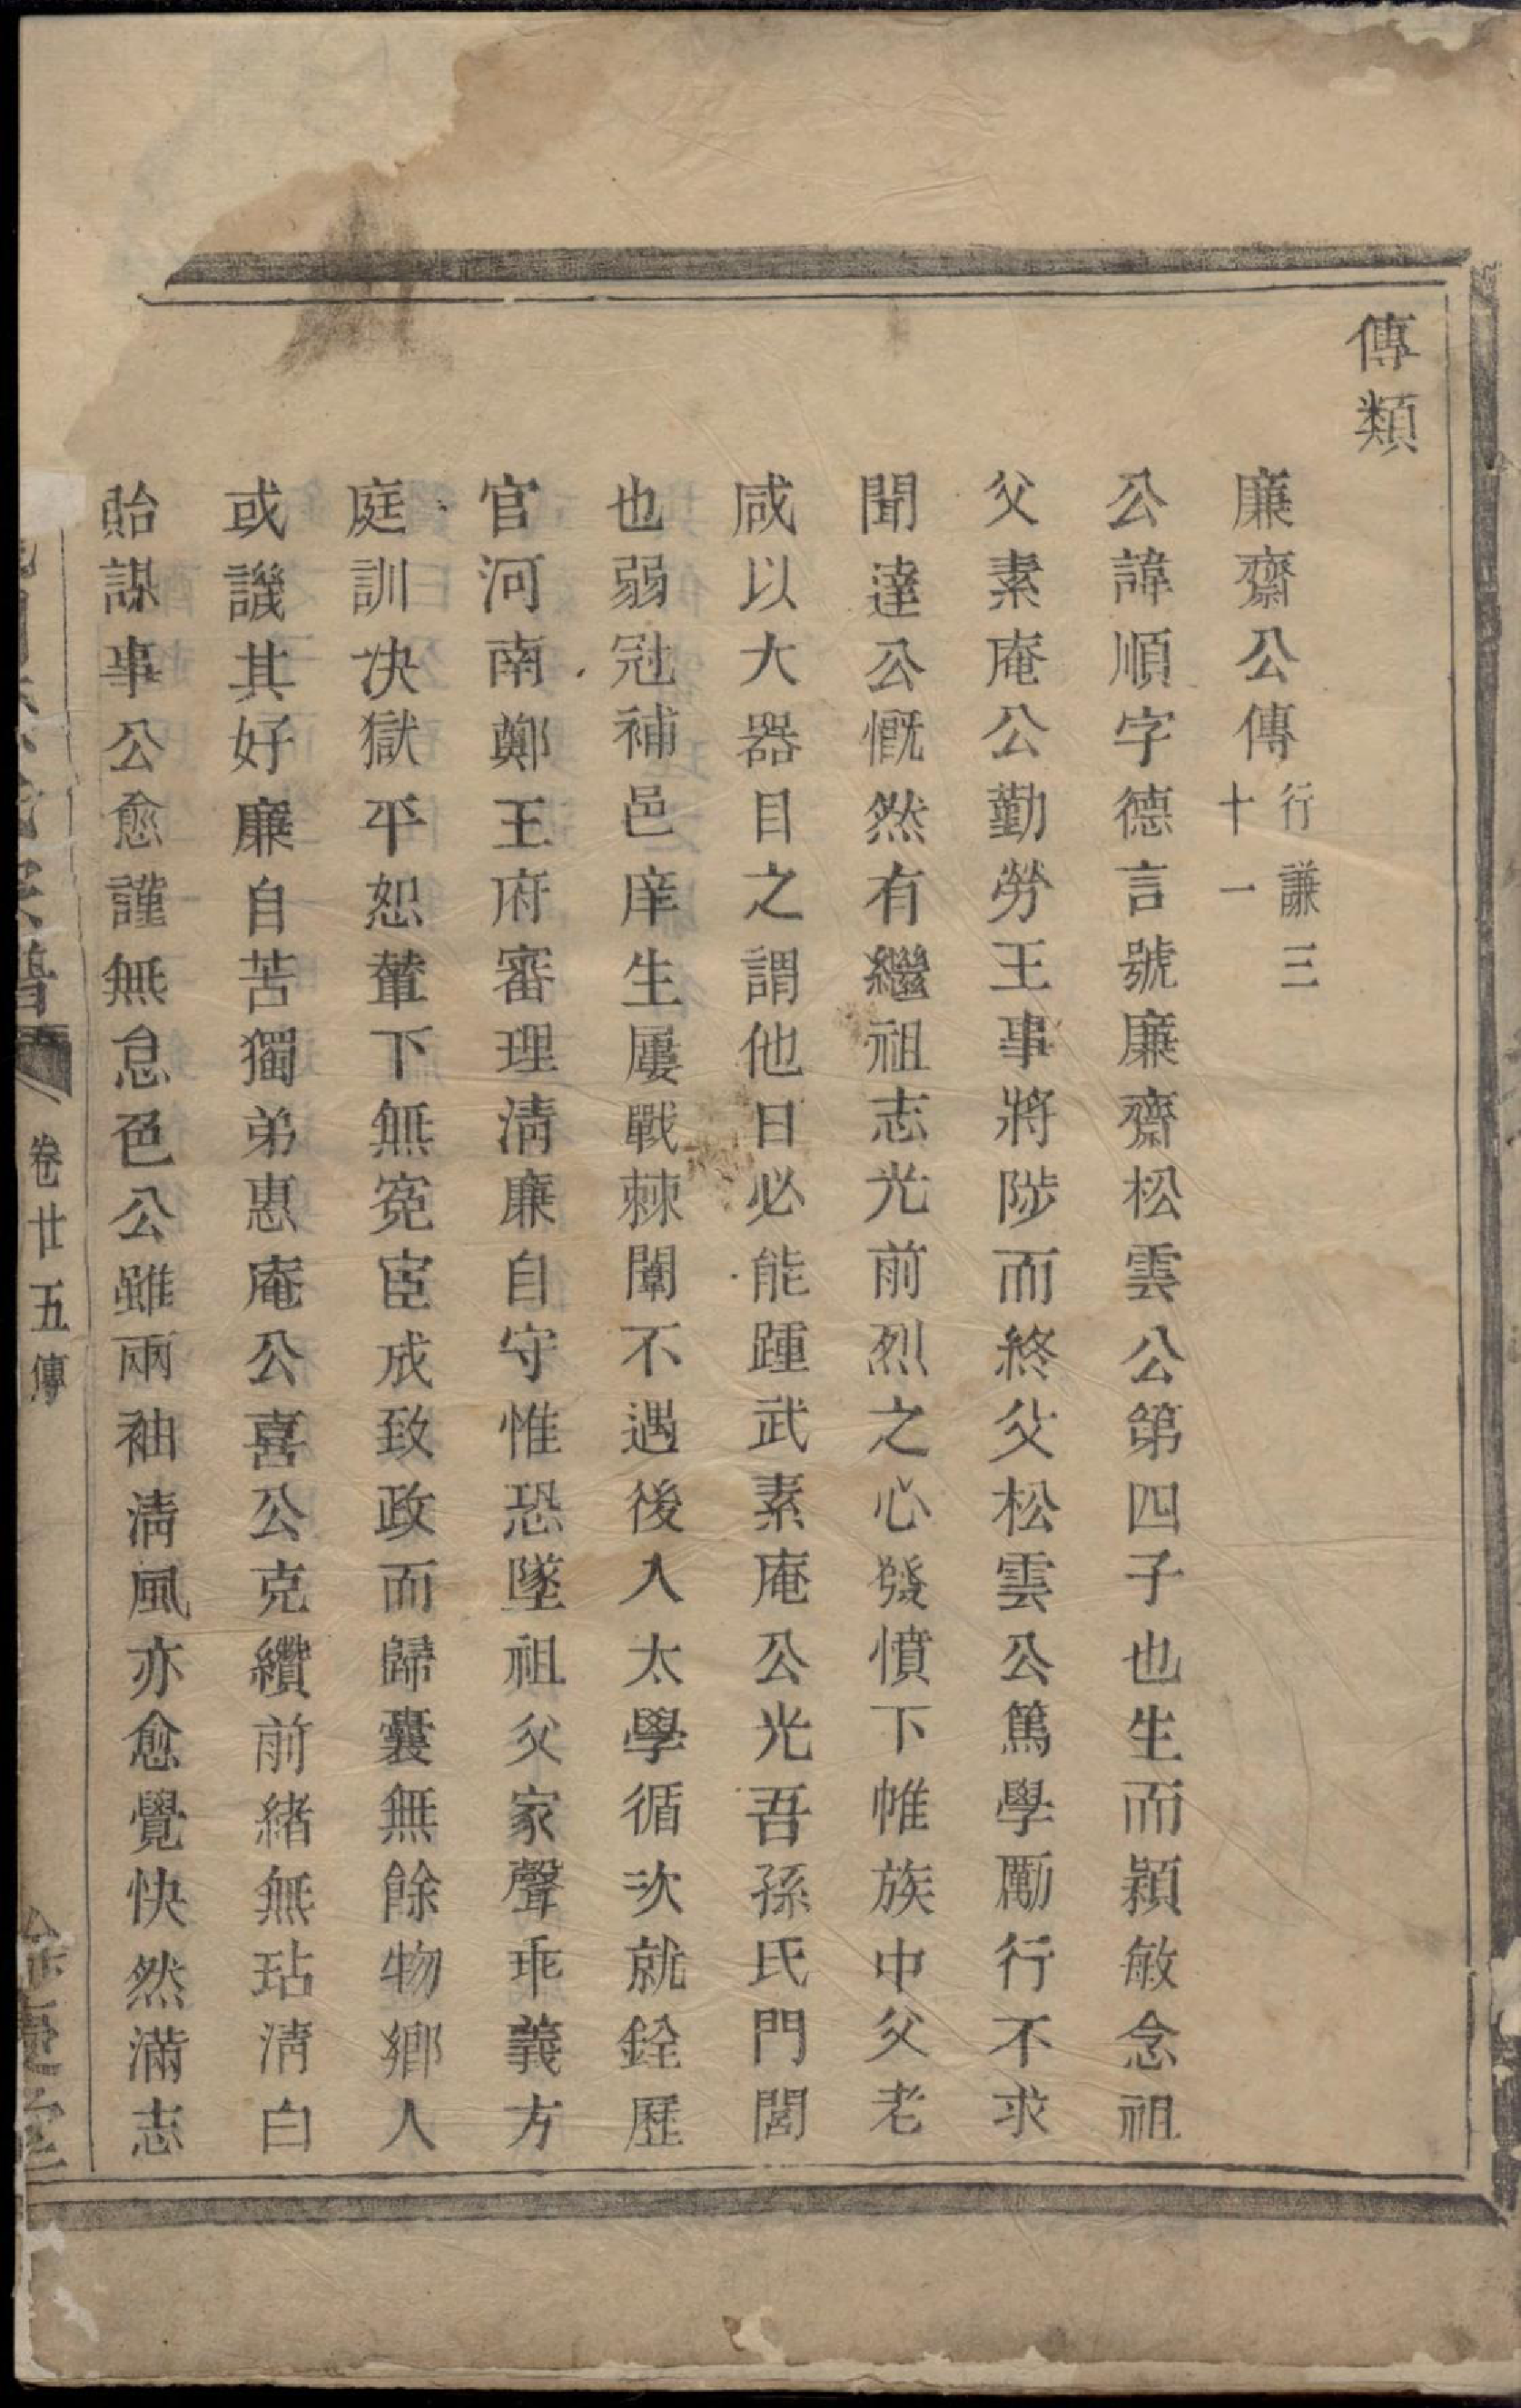 傳類
廉齋公傳行謙三十一
公諱順字德言號廉齋松雲公第四子也生而穎敏念祖
父素庵公勤勞王事將陟而終父松雲公篤學勵行不求
聞達公慨然有繼祖志光前烈之心發憤下帷族中父老
咸以大器目之謂他日必能踵武素庵公光吾孫氏門閭
也弱冠補邑庠生屢戰棘闈不遇後入太學循次就銓歷
官河南鄭王府審理清廉自守惟恐墜祖父家聲乖義方
庭訓决獄平恕輦下無寃宦成致政而歸囊無餘物鄉人
或譏其好廉自苦獨弟惠庵公喜公克纘前緒無玷清白
貽謀事公愈謹無怠色公雖兩袖清風亦愈覺快然滿志
卷廿五傳